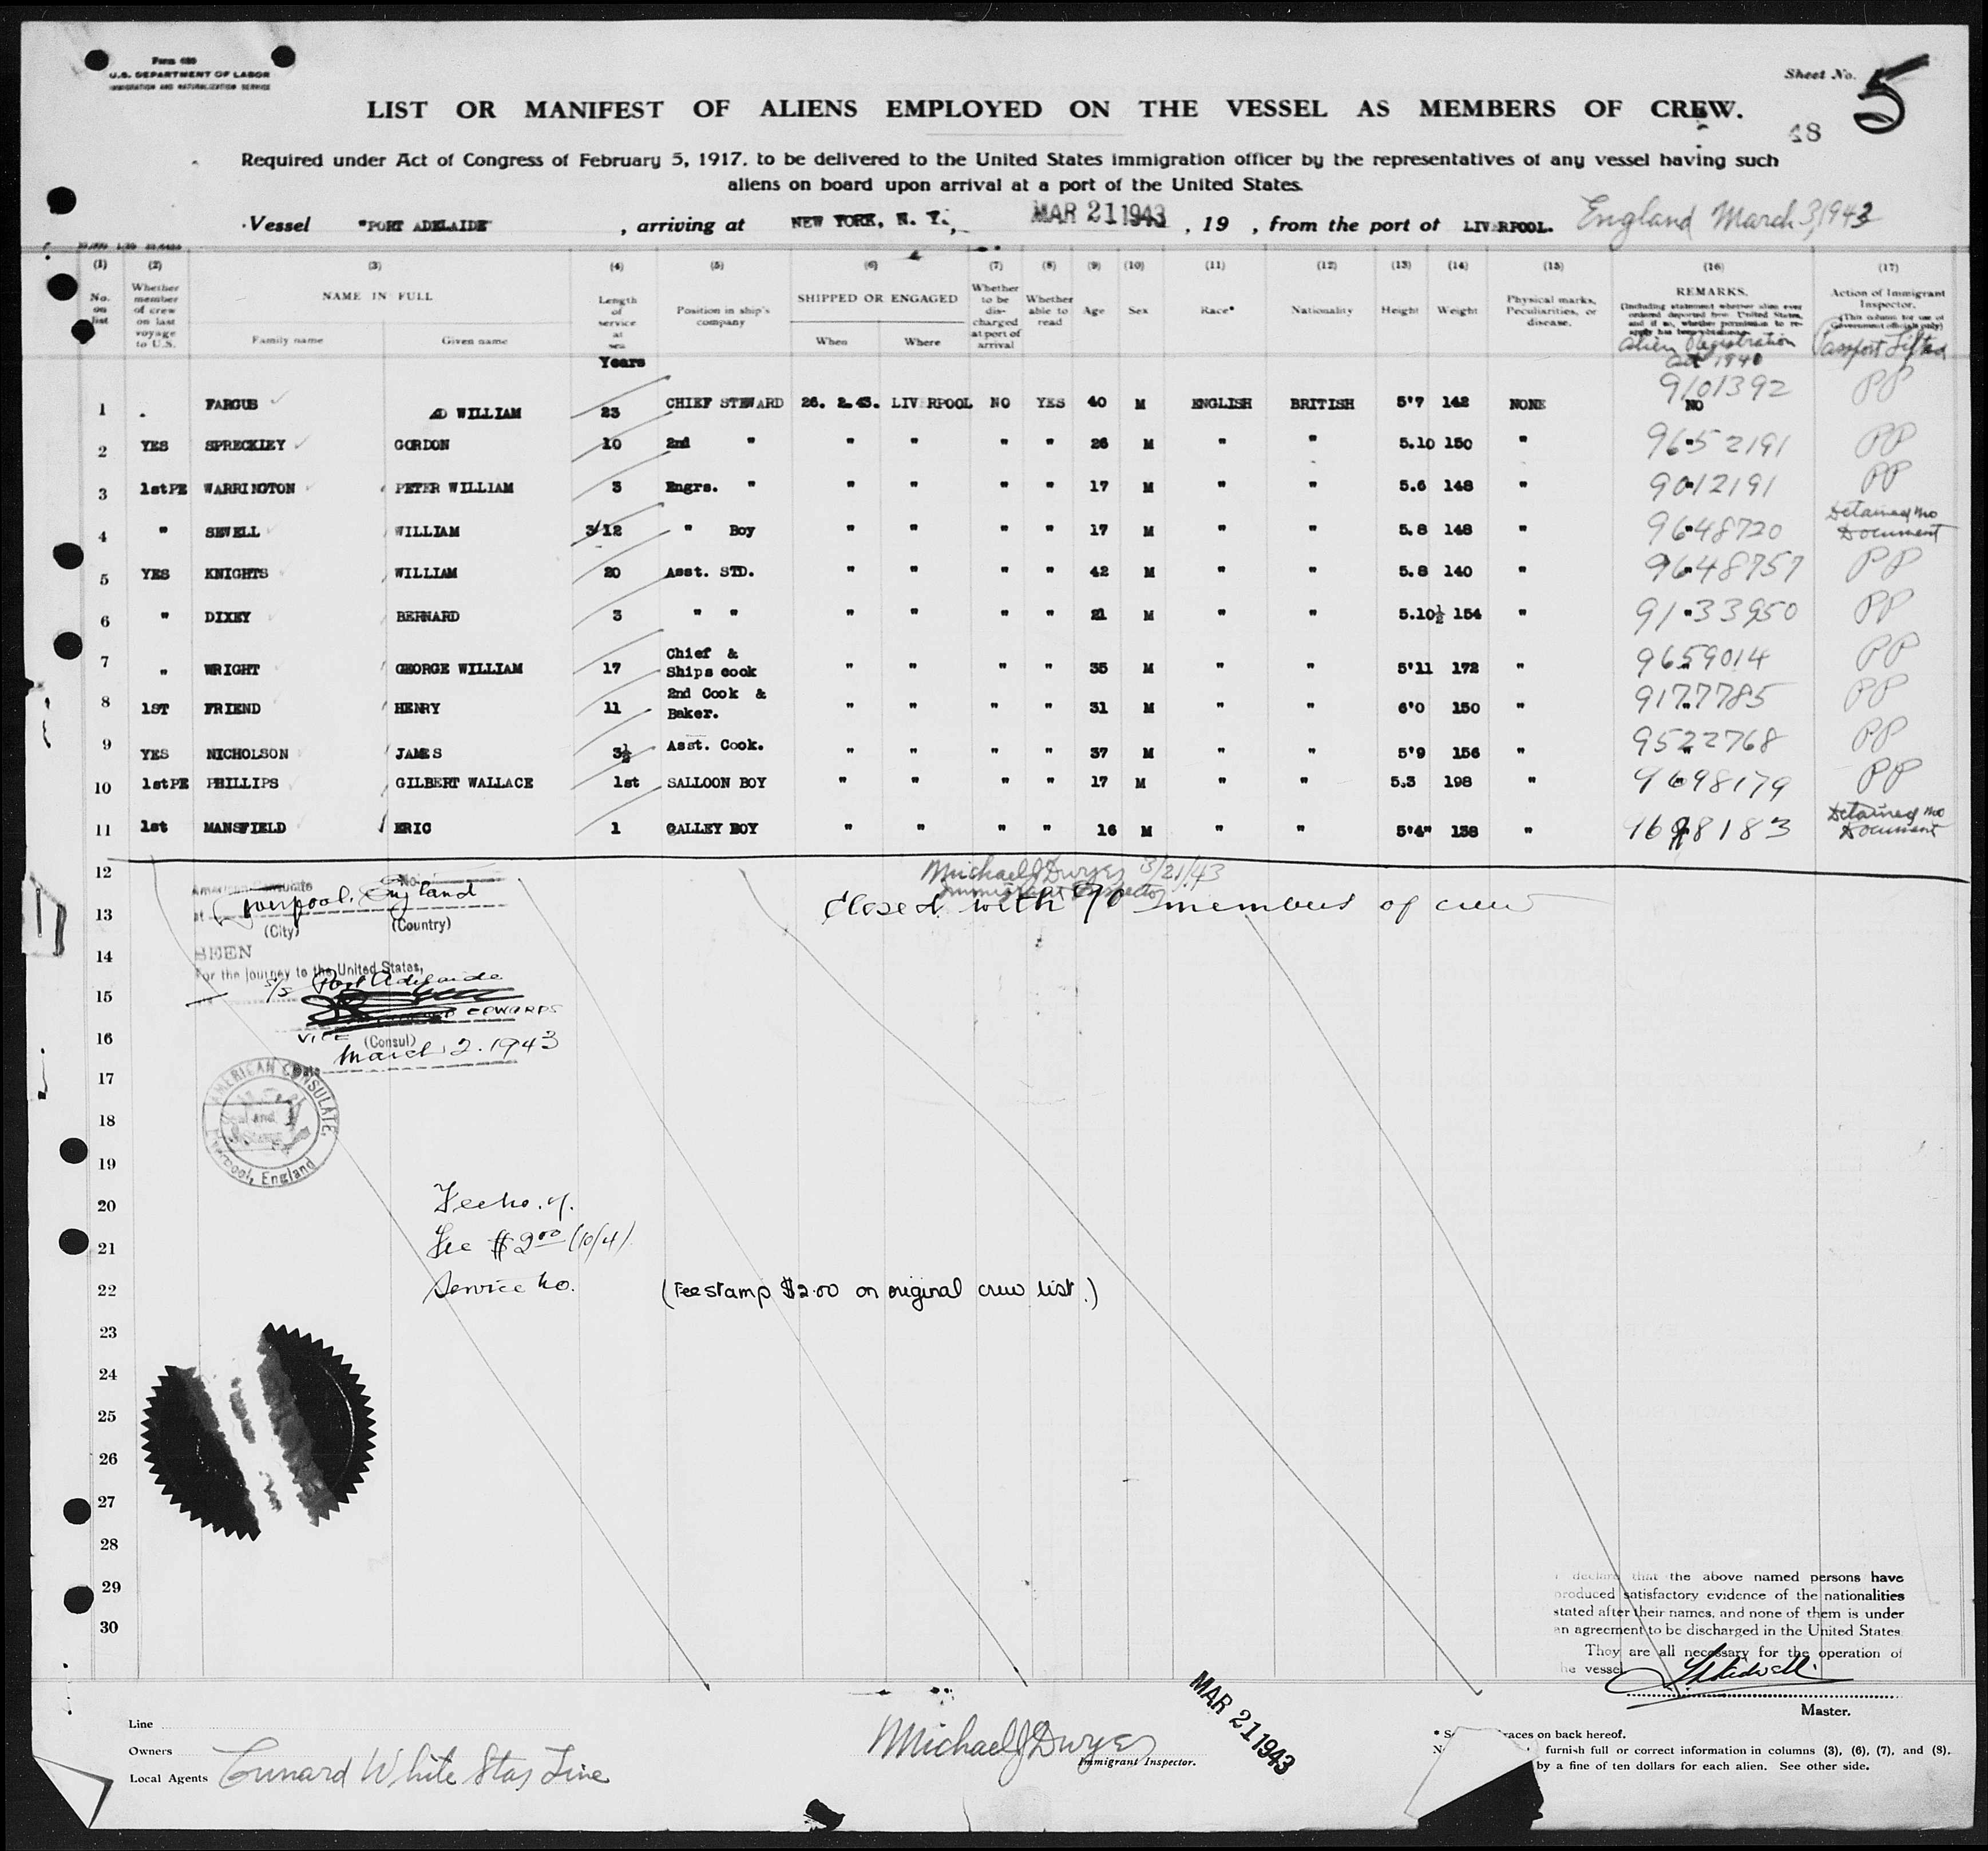 Form 680
U.S. DEPARTMENT OF LABOR
IMMIGRATION AND NATURALIZATION SERVICE
Sheet No. 5
LIST OR MANIFEST OF ALIENS EMPLOYED ON THE VESSEL AS MEMBERS OF CREW.
48
Required under Act of Congress of February 5, 1917, to be delivered to the United States immigration officer by the representatives of any vessel having such
aliens on board upon arrival at a port of the United States.
Vessel "PORT ADELAIDE" , arriving at NEW YORK, N. Y., MAR 21 1943 , 19 , from the port of LIVERPOOL. England March 3, 1943
(1) (2) (3) (4) (5) (6) (7) (8) (9) (10) (11) (12) (13) (14) (15) (16) (17)
No. on list
Whether member of crew on last voyage to U.S.
NAME IN FULL
Family name Given name
Length of service at sea
Years
Position in ship's company
SHIPPED OR ENGAGED
When Where
Whether to be discharged at port of arrival
Whether able to read
Age
Sex
Race*
Nationality
Height
Weight
Physical marks, Peculiarities, or disease.
REMARKS.
(Including statement whether alien ever ordered deported from United States, and if so, whether permission to reapply has been obtained)
Alien Registration
Act 1940
Action of Immigrant Inspector.
(This column for use of Government officials only)
Passport Lifted
1 FARGUS WILLIAM 23 CHIEF STEWARD 26. 2.43. LIVERPOOL NO YES 40 M ENGLISH BRITISH 5'7 142 NONE NO 9101392 PP
2 YES SPRECKLEY GORDON 10 2nd " " " " " 26 M " " 5.10 150 " " 9652191 PP
3 1stPE WARRINGTON PETER WILLIAM 3 Engrs. " " " " " 17 M " " 5.6 148 " " 9012191 PP
4 " SEWELL WILLIAM 3/12 " Boy " " " " 17 M " " 5.8 148 " " 9648720 Detained No Document
5 YES KNIGHTS WILLIAM 20 Asst. STD. " " " " 42 M " " 5.8 140 " " 9648757 PP
6 " DIXEY BERNARD 3 " " " " " " 21 M " " 5.10½ 154 " " 9133950 PP
7 " WRIGHT GEORGE WILLIAM 17 Chief & Ships cook " " " " 35 M " " 5'11 172 " " 9659014 PP
8 1ST FRIEND HENRY 11 2nd Cook & Baker. " " " " 31 M " " 6'0 150 " " 9177785 PP
9 YES NICHOLSON JAMES 3½ Asst. Cook. " " " " 37 M " " 5'9 156 " " 9522768 PP
10 1stPE PHILLIPS GILBERT WALLACE 1st SALLOON BOY " " " " 17 M " " 5.3 198 " " 9698179 PP
11 1st MANSFIELD ERIC 1 GALLEY BOY " " " " 16 M " " 5'4" 138 " 9698183 Detained No Document
12
Michael J Dwyer 3/21/43
Immigrant Inspector
American Consulate No.
13
closed with 90 members of crew
at Liverpool, England
(City) (Country)
14
SEEN
For the journey to the United States,
15
S/S Port Adelaide
EDWARDS
16
VICE (Consul)
March 2. 1943
Date
17
AMERICAN CONSULATE.
Liverpool, England
18
19
20
21
Fee $2.00 (10/4)
22
Service No.
(Fee stamp $2.00 on original crew list.)
23
24
25
26
27
28
29
30
I declare that the above named persons have
produced satisfactory evidence of the nationalities
stated after their names, and none of them is under
an agreement to be discharged in the United States.
They are all necessary for the operation of
the vessel
Master.
MAR 21 1943
Line
Owners
Local Agents Cunard White Star Line
Michael J Dwyer
Immigrant Inspector.
races on back hereof.
furnish full or correct information in columns (3), (6), (7), and (8).
by a fine of ten dollars for each alien. See other side.